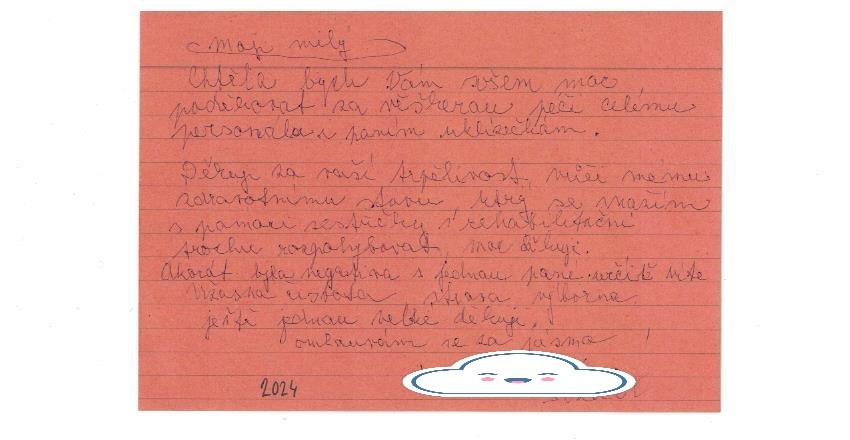 Moji milý
Chtěla bych Vám všem moc
poděkovat za veškerou péči celému
personálu i paním uklízečkám.
Děkuji za vaší trpělivost, vůči mému
zdravotnímu stavu, ktrý se snažím
s pomocí sestřičky s rehabilitační
trochu rozpohybovat, moc děkuji.
Akorát byla negativa s jednou paní určitě víte
Úžasná čistota strava výborna
ještě jednou velké děkuji.
omlouvám se za písmo !
2024